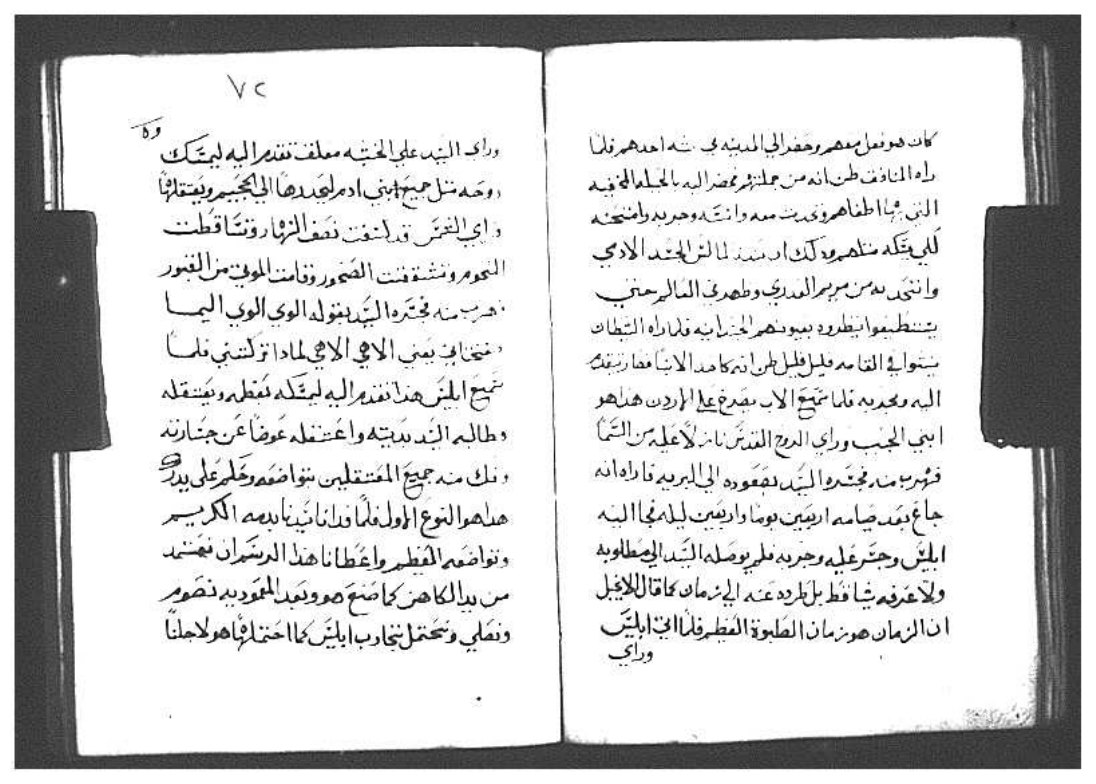 كان هو فعل معهم وحضر الي المدينه في شبه احدهم فلما
راه المنافق ظن انه من جملتهم فحضر اليه بالحيله المخفيه
التي بها اطغاهم وتحدث معه وانسه وجربه وامتحنه
لكي يمسكه مثلهم وذلك ان سيدنا لما لبس الجسد الادمي
واتحد به من مريم العدري وظهر في العالم حتي
يستطيعوا ينظروه بعيونهم الجسدانيه فلما راه الشيطان
ينشوا في القامه قليل قليل ظن انه كاحد الانبيا فصار يتقدم
اليه ويجربه فلما سمع الاب يصرخ علي الاردن هذا هو
ابني الحبيب وراي الروح القدس نازلا عليه من السما
فهرب منه فجسره السيد بصعوده الي البريه فاراه انه
جاع بعد صيامه اربعين يوما واربعين ليله فجا اليه
ابليس وجسر عليه وجربه فلم يوصله السيد الي مطلوبه
ولا عرفه شيا قط بل طرده عنه الي زمان كما قال الانجيل
ان الزمان هو زمان الصلبوة العظيم فلما اتي ابليس
وراي
٧٢
وه
وراي السيد علي الخشبه معلق تقدم اليه ليمسك
روحه مثل جميع ابني ادم ليحدرها الي الجحيم ويعتقلها
فراي الشمس قد كسفت نصف النهار وتساقطت
النجوم وتشققت الصخور وقامت الموتي من القبور
فهرب منه فجسره السيد بقوله الوي الوي اليما
صفختاني يعني الاهي الاهي لماذا تركتني فلما
سمع ابليس هذا تقدم اليه ليمسكه فضبطه ويعتقله
وطالبه السيد بديته واعتقله عوضا عن جسارته
وفك منه جميع المعتقلين بتواضعه وحلم علي يديه
هذا هو النوع الاول فلما فدانا سيدنا بدمه الكريم
وتواضعه العظيم واعطانا هذا الرسم ان نعتمد
من يد الكاهن كما صنع هو وبعد المعموديه نصوم
ونصلي ونحتمل تجارب ابليس كما احتملها هو لاجلنا